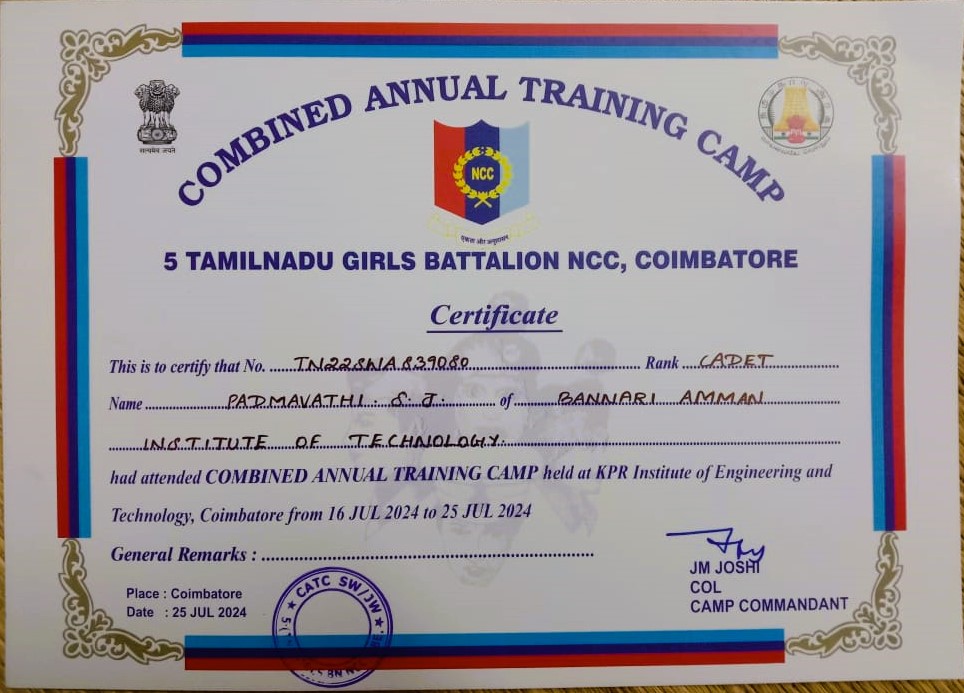 COMBINED ANNUAL TRAINING CAMP
सत्यमेव जयते
NCC
एकता और अनुशासन
5 TAMILNADU GIRLS BATTALION NCC, COIMBATORE
Certificate
This is to certify that No. TN22SWA839080 Rank CADET
Name PADMAVATHI . S. J. of BANNARI AMMAN
INSTITUTE OF TECHNOLOGY.
had attended COMBINED ANNUAL TRAINING CAMP held at KPR Institute of Engineering and
Technology, Coimbatore from 16 JUL 2024 to 25 JUL 2024
General Remarks :
JM JOSHI
COL
CAMP COMMANDANT
Place : Coimbatore
Date : 25 JUL 2024
CATC SW/JW